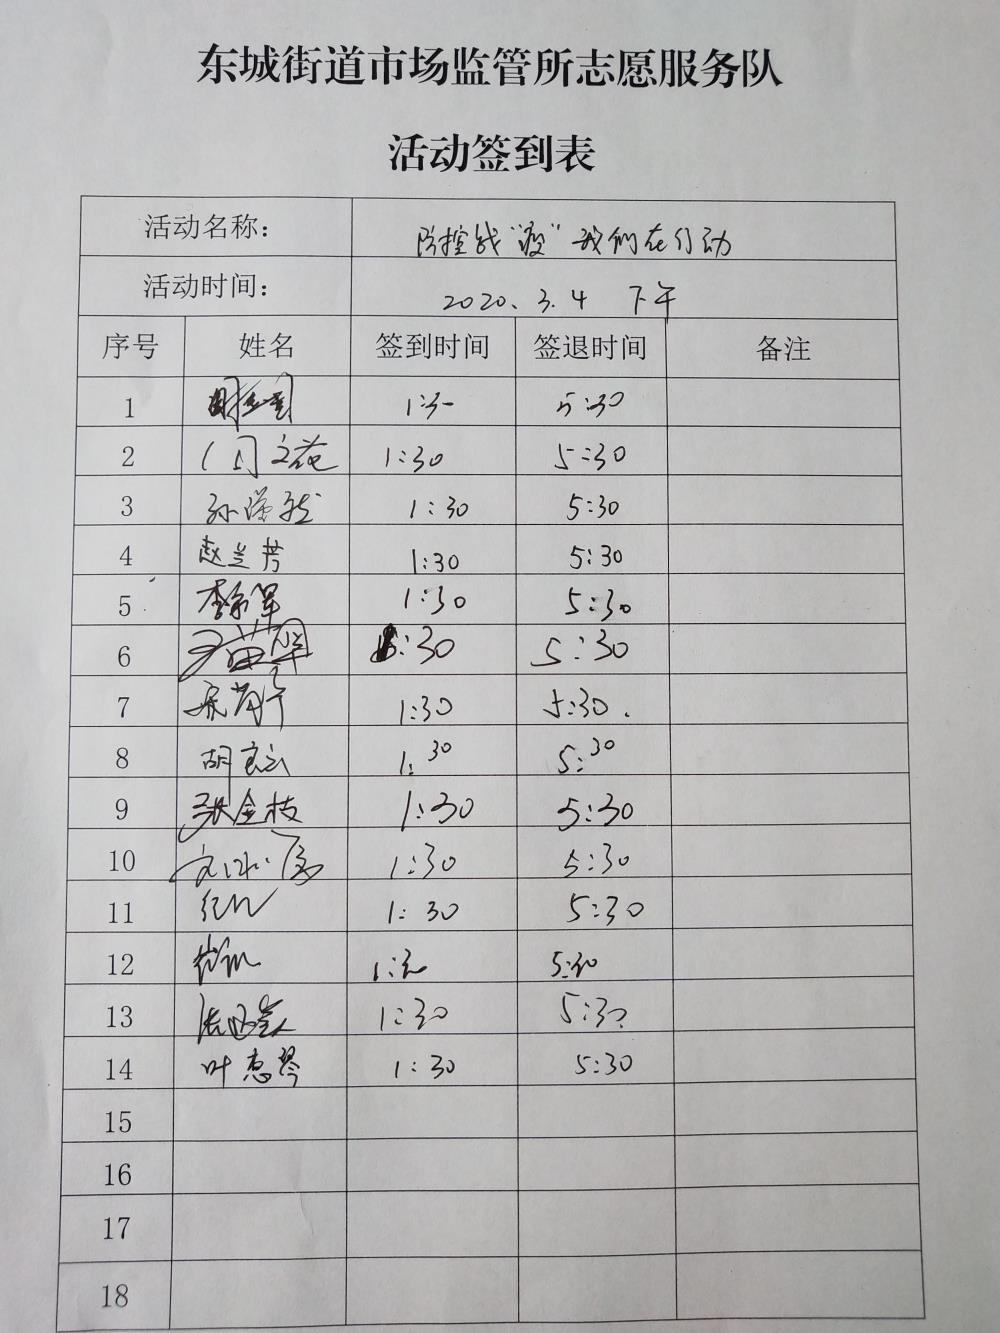 东城街道市场监管所志愿服务队
活动签到表
活动名称： 防控战"疫"我们在行动
活动时间： 2020.3.4 下午
序号 姓名 签到时间 签退时间 备注
1 1:30 5:30
2 文花 1:30 5:30
3 孙 1:30 5:30
4 赵兰芳 1:30 5:30
5 李 军 1:30 5:30
6 1:30 5:30
7 1:30 5:30.
8 胡 1:30 5:30
9 张金枝 1:30 5:30
10 1:30 5:30
11 1:30 5:30
12 1:30 5:30
13 1:30 5:30
14 叶惠琴 1:30 5:30
15
16
17
18